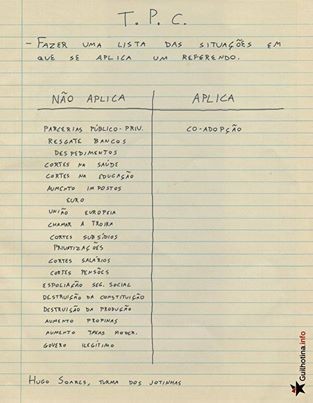 T. P. C.
- FAZER UMA LISTA DAS SITUAÇÕES EM
QUE SE APLICA UM REFERENDO.
NÃO APLICA
APLICA
PARCERIAS PÚBLICO-PRIV.
CO-ADOPÇÃO
RESGATE BANCOS
DESPEDIMENTOS
CORTES NA SAÚDE
CORTES NA EDUCAÇÃO
AUMENTO IMPOSTOS
EURO
UNIÃO EUROPEIA
CHAMAR A TROIKA
CORTES SUBSÍDIOS
PRIVATIZAÇÕES
CORTES SALÁRIOS
CORTES PENSÕES
ESPOLIAÇÃO SEG. SOCIAL
DESTRUIÇÃO DA CONSTITUIÇÃO
DESTRUIÇÃO DA PRODUÇÃO
AUMENTO PROPINAS
AUMENTO TAXAS MODER.
GOVERNO ILEGÍTIMO
HUGO SOARES, TURMA DOS JOTINHAS
Guilhotina.info